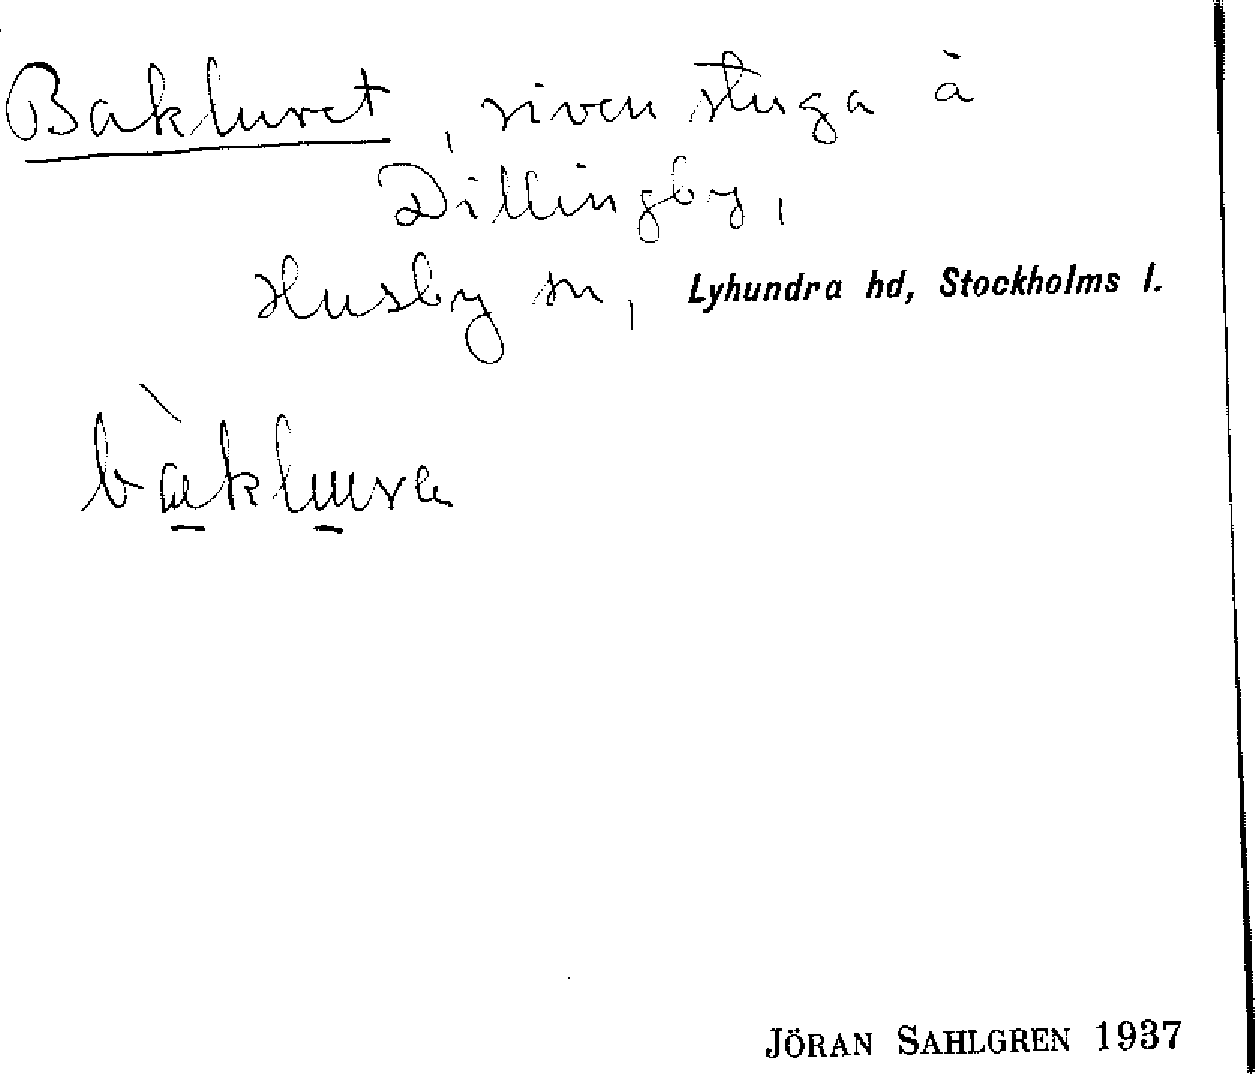 Bakluret, riven stuga å
Dillingby,
Husby sn, Lyhundra hd, Stockholms l.
JÖRAN SAHLGREN 1937